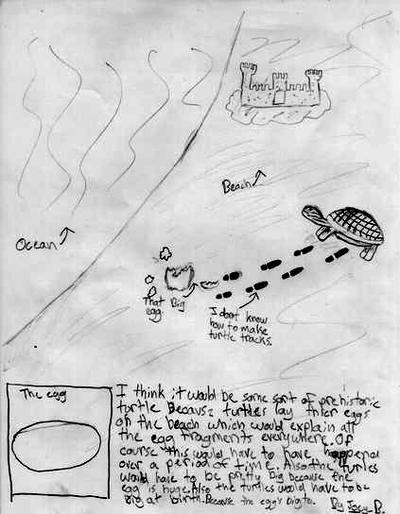 Beach
Ocean
That Big
egg.
I don't know
how to make
turtle tracks.
The egg
I think it would be some sort of prehistoric
turtle Because turtles lay thier eggs
on the beach which would explain all
the egg fragments everywhere. Of
course this would have to have happened
over a period of time. Also the turtles
would have to be pretty big because the
egg is huge. Also the turtles would have to be
big at birth. Because the egg's big to.
By Joey P.